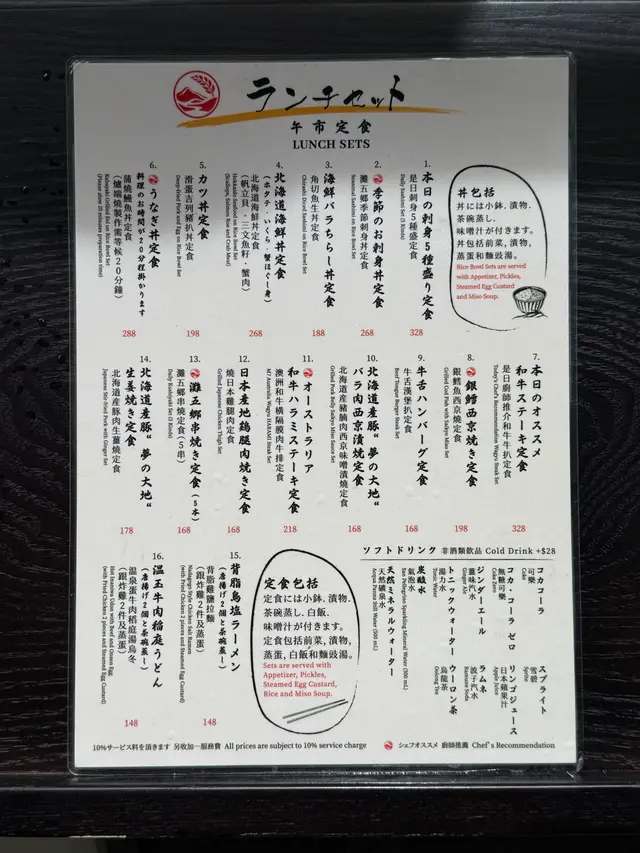 ランチセット
午市定食
LUNCH SETS
丼包括
丼には小鉢,漬物,
茶碗蒸し,
味噌汁が付きます。
丼包括前菜,漬物,
蒸蛋和麵豉湯。
Rice Bowl Sets are served
with Appetizer, Pickles,
Steamed Egg Custard
and Miso Soup.
1.
本日の刺身5種盛り定食
是日刺身5種盛定食
Daily Sashimi Set (5 Kinds)
328
2.
季節のお刺身丼定食
灘五郷季節刺身丼定食
Seasonal Sashimi on Rice Bowl Set
268
3.
海鮮バラちらし丼定食
角切魚生丼定食
Chirashi Diced Sashimi on Rice Bowl Set
188
4.
北海道海鮮丼定食
(ホタテ・いくら・蟹ほぐし身)
北海道海鮮丼定食
(帆立貝・三文魚籽・蟹肉)
Hokkaido Seafood on Rice Bowl Set
(Scallops, Salmon Roe and Crab Meat)
268
5.
カツ丼定食
滑蛋吉列豬扒丼定食
Deep-fried Pork and Egg on Rice Bowl Set
198
6.
うなぎ丼定食
料理のお時間が20分程掛かります
蒲燒鰻魚丼定食
(爐端燒製作需等候20分鐘)
Kabayaki Grilled Eel on Rice Bowl Set
(Please allow 20 minutes preparation time)
288
7.
本日のオススメ
和牛ステーキ定食
是日廚師推介和牛扒定食
Today's Chef's Recommendation Wagyu Steak Set
328
8.
銀鱈西京焼き定食
銀鱈魚西京燒定食
Grilled Cod Fish with Saikyo Miso Set
198
9.
牛舌ハンバーグ定食
牛舌漢堡扒定食
Beef Tongue Burger Steak Set
168
10.
北海道産豚“夢の大地“
バラ肉西京漬焼定食
北海道産豬腩肉西京味噌漬燒定食
Grilled Pork Belly Saikyo Miso Sauce Set
168
11.
オーストラリア
和牛ハラミステーキ定食
澳洲和牛橫隔膜肉牛排定食
M7 Australia Wagyu HARAMI Steak Set
218
12.
日本産地鶏腿肉焼き定食
燒日本雞腿肉定食
Grilled Japanese Chicken Thigh Set
168
13.
灘五郷串焼き定食(5本)
灘五郷串燒定食(5串)
Daily Kushiyaki Set (5 Kinds)
168
14.
北海道産豚“夢の大地“
生姜焼き定食
北海道産豚肉生薑燒定食
Japanese Stir-fried Pork with Ginger Set
178
15.
背脂鳥塩ラーメン
(唐揚げ2個と茶碗蒸し)
背脂雞鹽拉麵
(跟炸雞2件及蒸蛋)
Nadagogo Style Chicken Salt Ramen
(with Fried Chicken 2 pieces and Steamed Egg Custard)
148
16.
温玉牛肉稲庭うどん
(唐揚げ2個と茶碗蒸し)
温泉蛋牛肉稻庭湯烏冬
(跟炸雞2件及蒸蛋)
Hot Inaniwa Udon with Beef and Onsen Egg
(with Fried Chicken 2 pieces and Steamed Egg Custard)
148
定食包括
定食には小鉢,漬物,
茶碗蒸し,白飯,
味噌汁が付きます。
定食包括前菜,漬物,
蒸蛋,白飯和麵豉湯。
Sets are served with
Appetizer, Pickles,
Steamed Egg Custard,
Rice and Miso Soup.
ソフトドリンク 非酒類飲品 Cold Drink +$28
コカコーラ
可樂
Coke
コカ・コーラ ゼロ
無糖可樂
Coke Zero
ジンジャーエール
薑味汽水
Ginger Ale
トニックウォーター
湯力水
Tonic Water
炭酸水
氣泡水
San Pellegrino Sparkling Mineral Water (500 mL)
天然ミネラルウォーター
天然礦泉水
Acqua Panna Still Water (500 mL)
スプライト
雪碧
Sprite
リンゴジュース
日本蘋果汁
Apple Juice
ラムネ
波子汽水
Ramune Soda
ウーロン茶
烏龍茶
Oolong Tea
10%サービス料を頂きます 另收加一服務費 All prices are subject to 10% service charge
シェフオススメ 廚師推薦 Chef's Recommendation